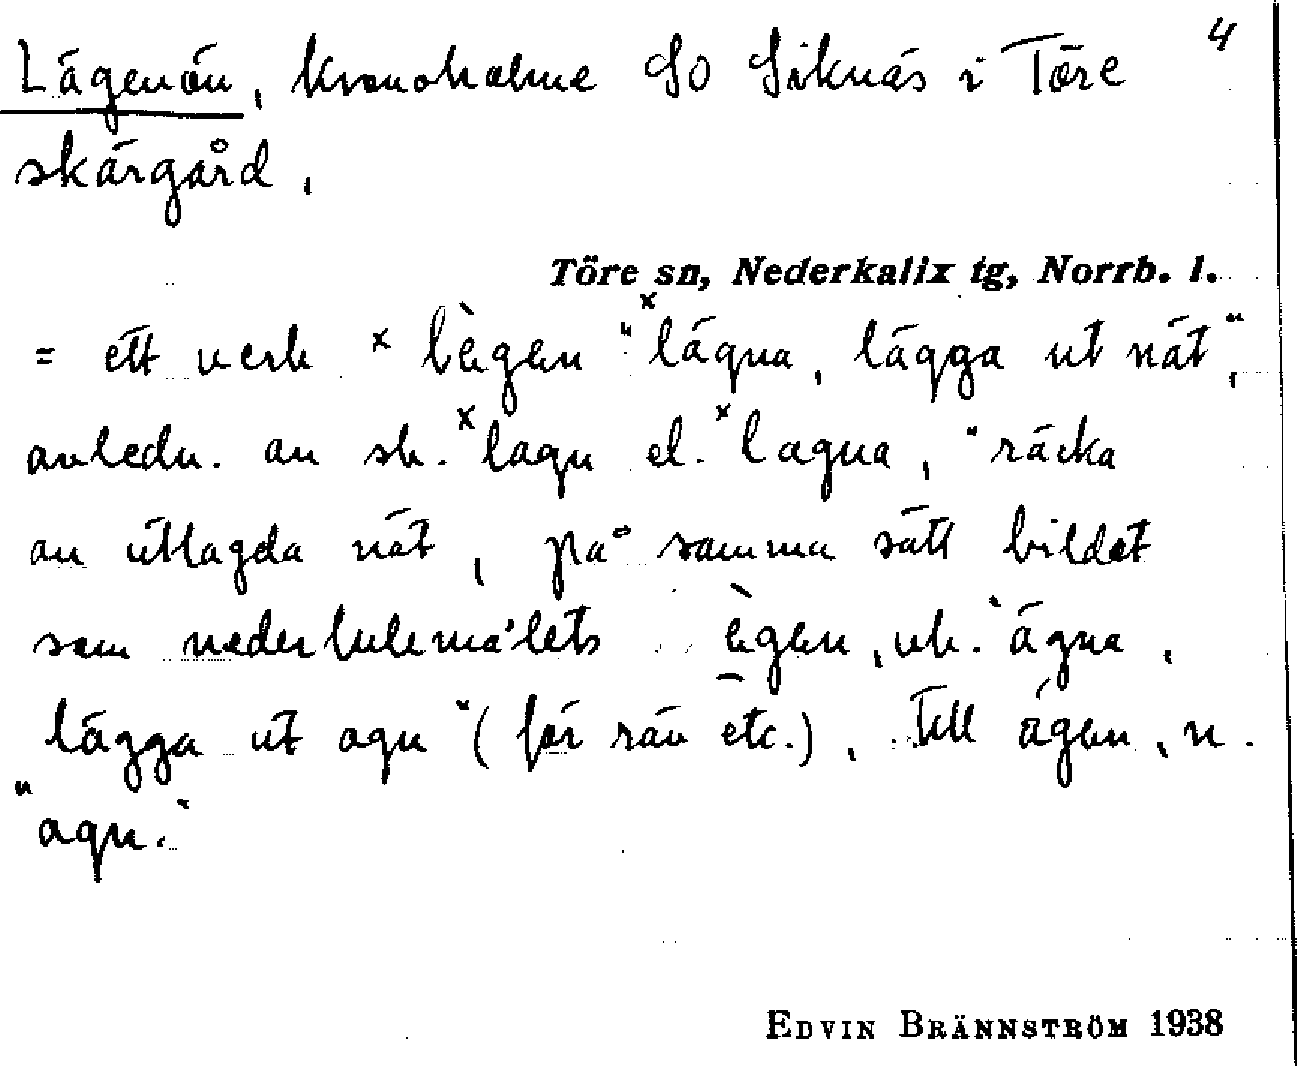 Lägenön, kronoholme SO Siknäs i Töre 4
skärgård.
Töre sn, Nederkalix tg, Norrb. l.
= ett verb × lègen "×lägna, lägga ut nät",
avledn. av sb. ×lagn el. ×lagna, "räcka
av utlagda nät, på samma sätt bildat
som nederlulemålets ègen, vb. "ägna,
lägga ut agn" (för räv etc.), till ágen, n.
"agn."
EDVIN BRÄNNSTRÖM 1938